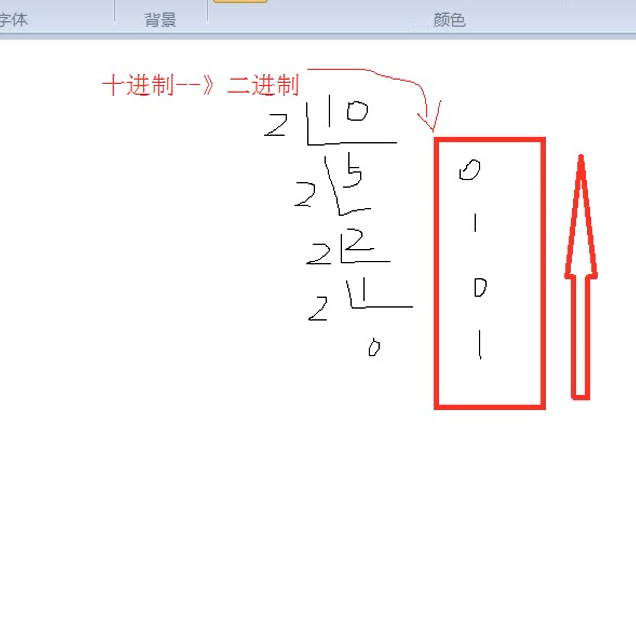 字体 背景 颜色
十进制--》二进制
2 10
2 5 0
2 2 1
2 1 0
0 1